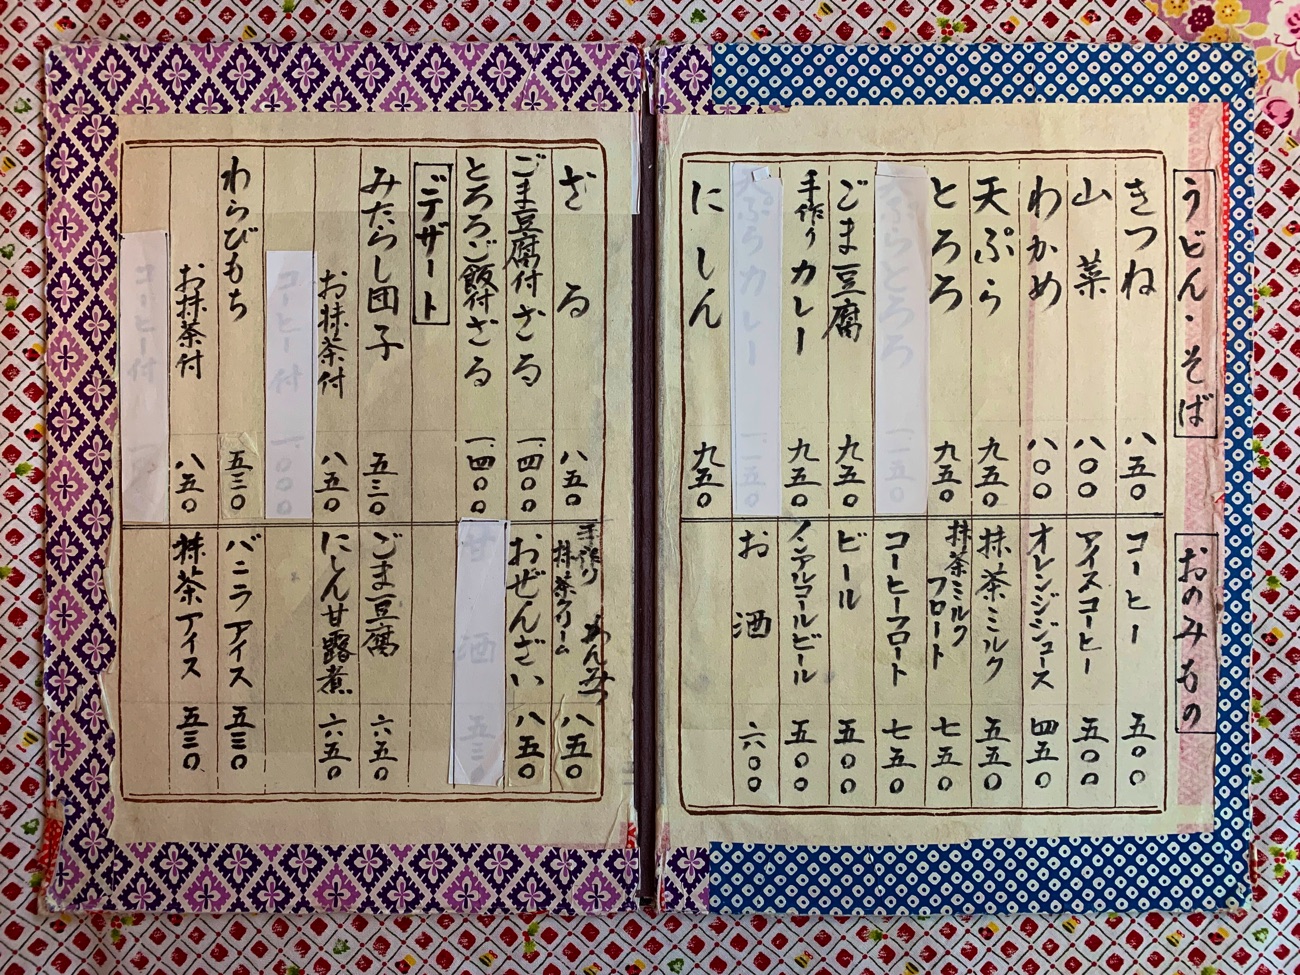 うどん・そば
きつね 八五〇
山菜 八〇〇
わかめ 八〇〇
天ぷら 九五〇
とろろ 九五〇
ぷらとろろ 一、一五〇
ごま豆腐 九五〇
手作りカレー 九五〇
ぷらカレー 一、一五〇
にしん 九五〇
おのみもの
コーヒー 五〇〇
アイスコーヒー 五〇〇
オレンジジュース 四五〇
抹茶ミルク 五五〇
抹茶ミルクフロート 七五〇
コーヒーフロート 七五〇
ビール 五〇〇
ノンアルコールビール 五〇〇
お酒 六〇〇
ざる 八五〇
ごま豆腐付ざる 一、四〇〇
とろろご飯付ざる 一、四〇〇
ごデザート
みたらし団子 五三〇
お抹茶付 八五〇
コーヒー付 一、〇〇〇
わらびもち 五三〇
お抹茶付 八五〇
コーヒー付
手作り抹茶クリームあんみつ 八五〇
おぜんざい 八五〇
甘酒 五三〇
ごま豆腐 六五〇
にしん甘露煮 六五〇
バニラアイス 五三〇
抹茶アイス 五三〇